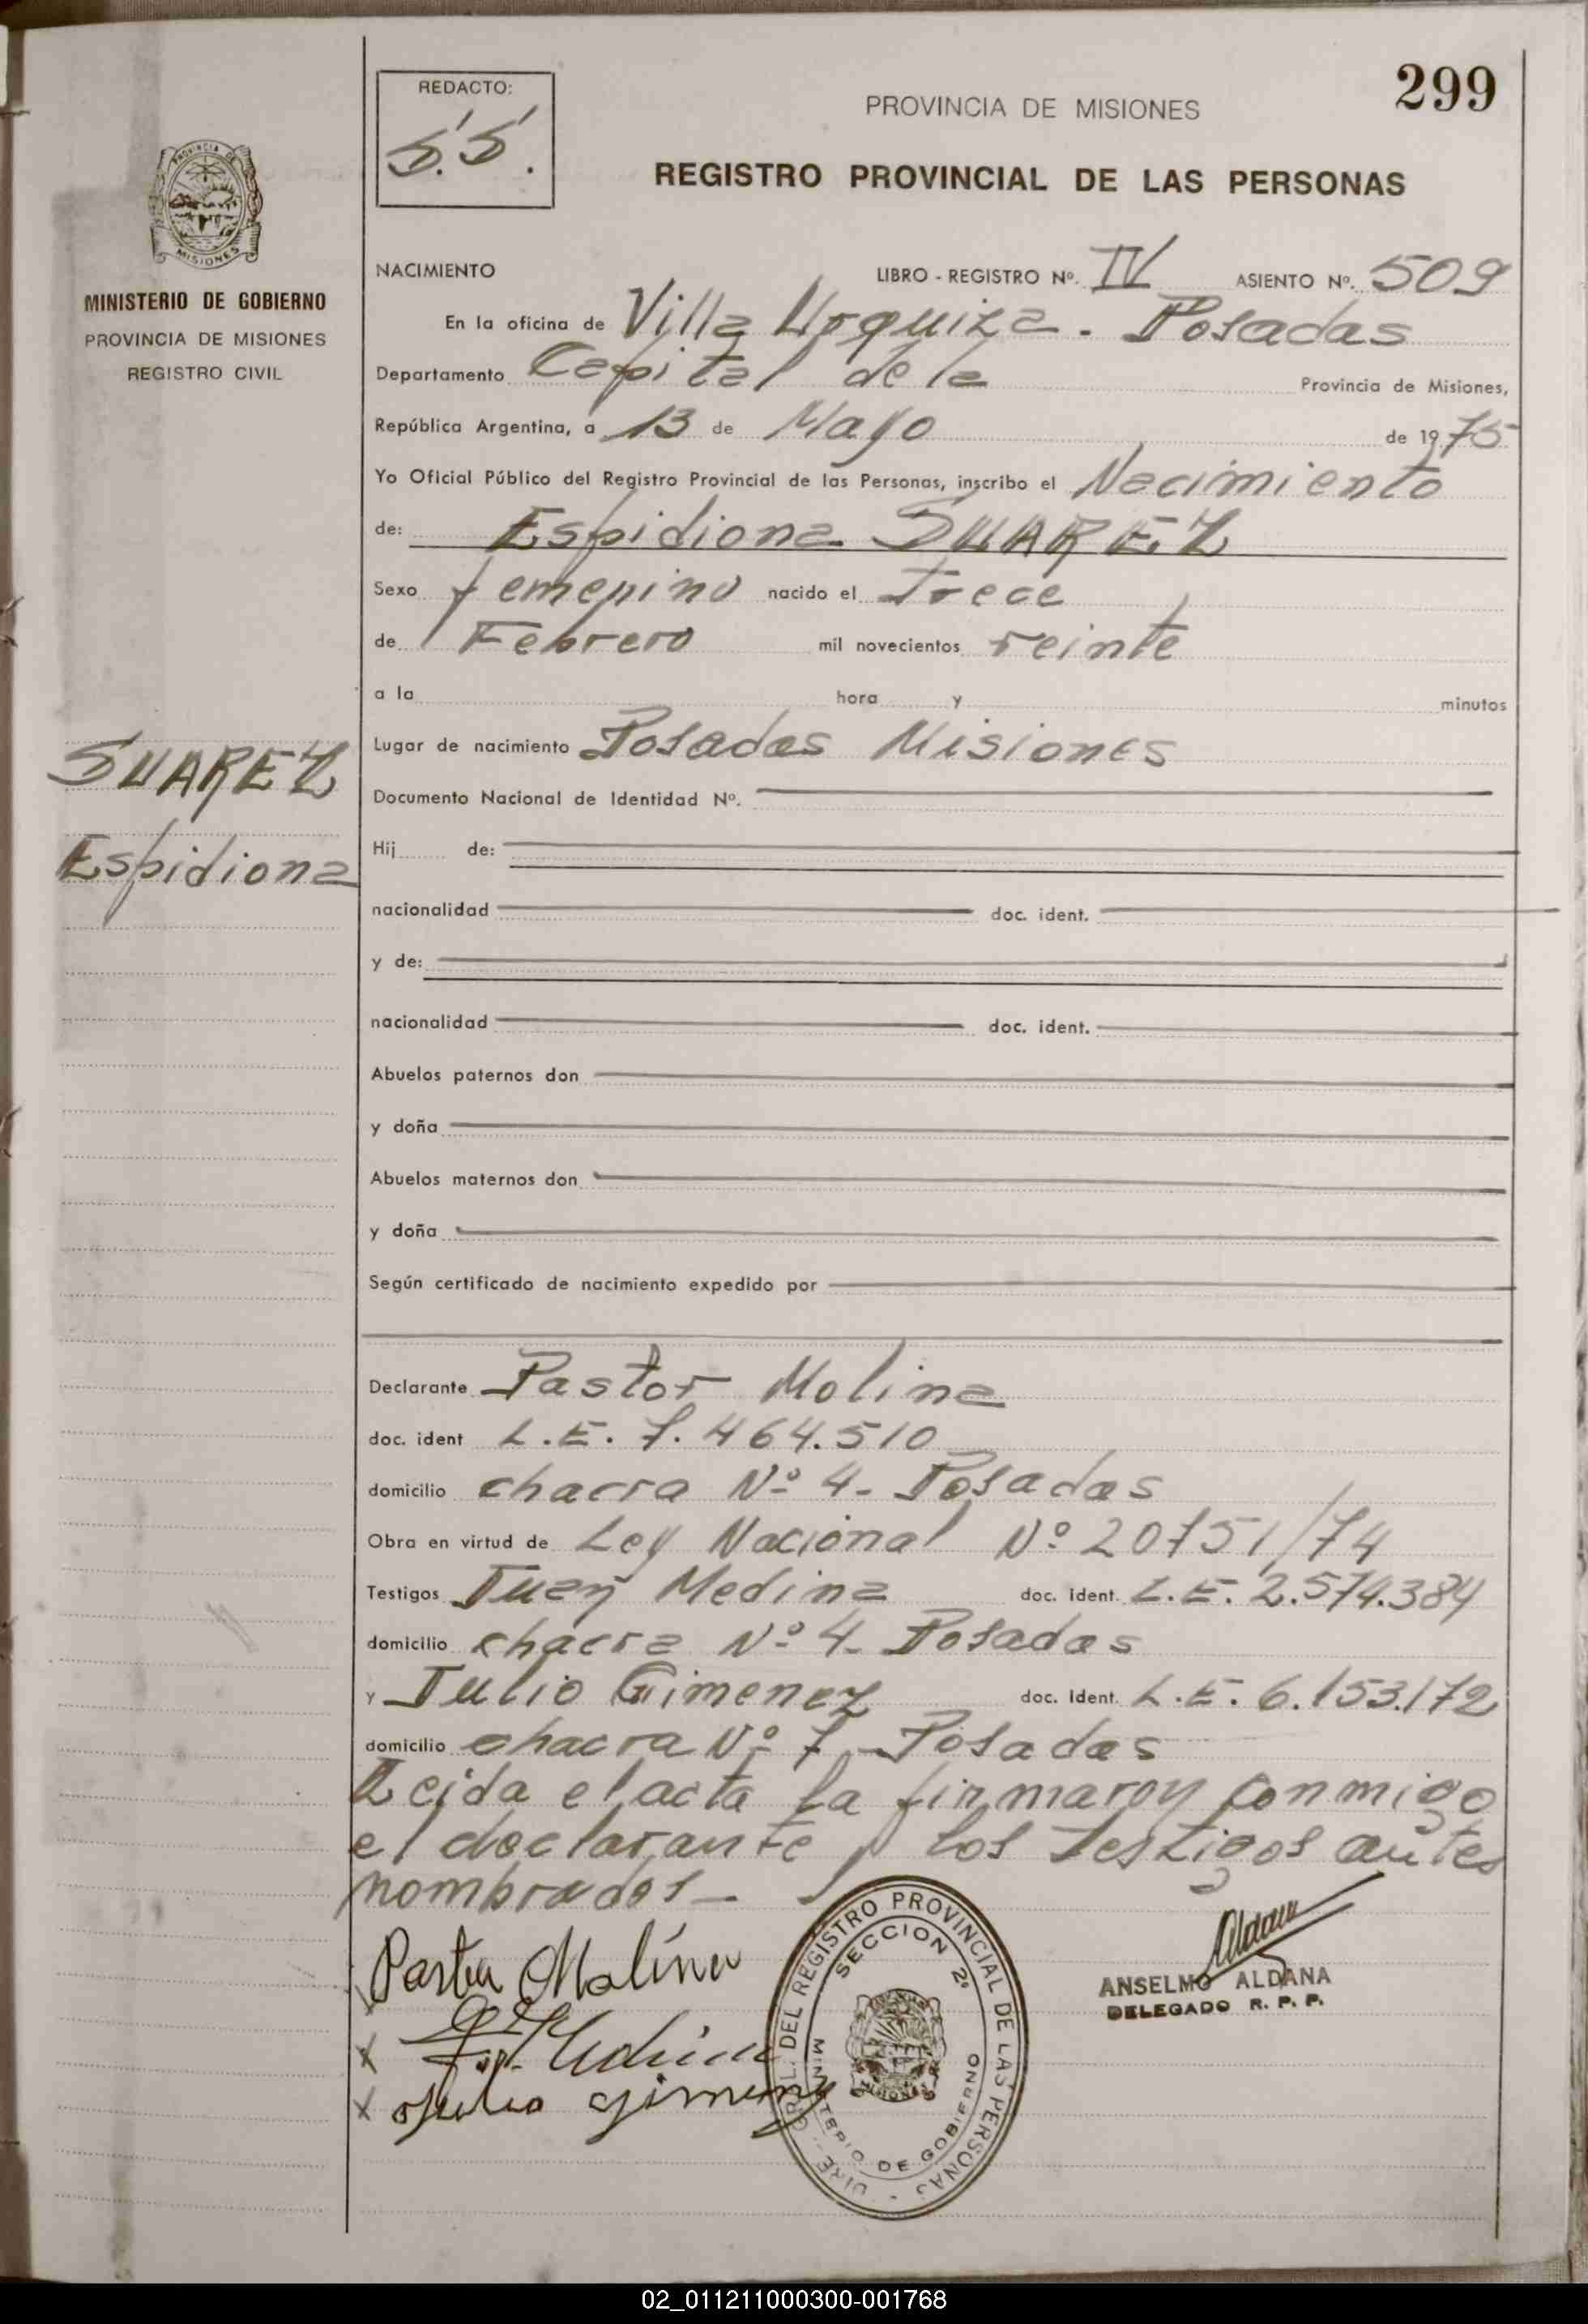 299
REDACTO:
S.S.
PROVINCIA DE MISIONES
REGISTRO PROVINCIAL DE LAS PERSONAS
PROVINCIA DE
MISIONES
MINISTERIO DE GOBIERNO
PROVINCIA DE MISIONES
REGISTRO CIVIL
NACIMIENTO LIBRO - REGISTRO Nº. IV ASIENTO Nº. 509
En la oficina de Villa Urquiza - Posadas
Departamento Capital de la Provincia de Misiones,
República Argentina, a 13 de Mayo de 1975
Yo Oficial Público del Registro Provincial de las Personas, inscribo el Nacimiento
de: Espidiona SUAREZ
Sexo femenino nacido el trece
de Febrero mil novecientos veinte
a la hora y minutos
Lugar de nacimiento Posadas Misiones
SUAREZ
Espidiona
Documento Nacional de Identidad Nº.
Hij de:
nacionalidad doc. ident.
y de:
nacionalidad doc. ident.
Abuelos paternos don
y doña
Abuelos maternos don
y doña
Según certificado de nacimiento expedido por
Declarante Pastor Molina
doc. ident L.E. 7.464.510
domicilio chacra Nº 4- Posadas
Obra en virtud de Ley Nacional Nº 20751/74
Testigos Juan Medina doc. ident. L.E. 2.574.384
domicilio chacra Nº 4- Posadas
y Julio Gimenez doc. Ident. L.E. 6.153.172
domicilio chacra Nº 7 - Posadas
Leida el acta la firmaron conmigo
el declarante y los testigos antes
nombrados -
Pastor Molina
x Medina
x Julio Gimenez
DIRE. GRAL. DEL REGISTRO PROVINCIAL DE LAS PERSONAS -
SECCION 2º
MINISTERIO DE GOBIERNO
MISIONES
Aldana
ANSELMO ALDANA
DELEGADO R. P. P.
02_011211000300-001768